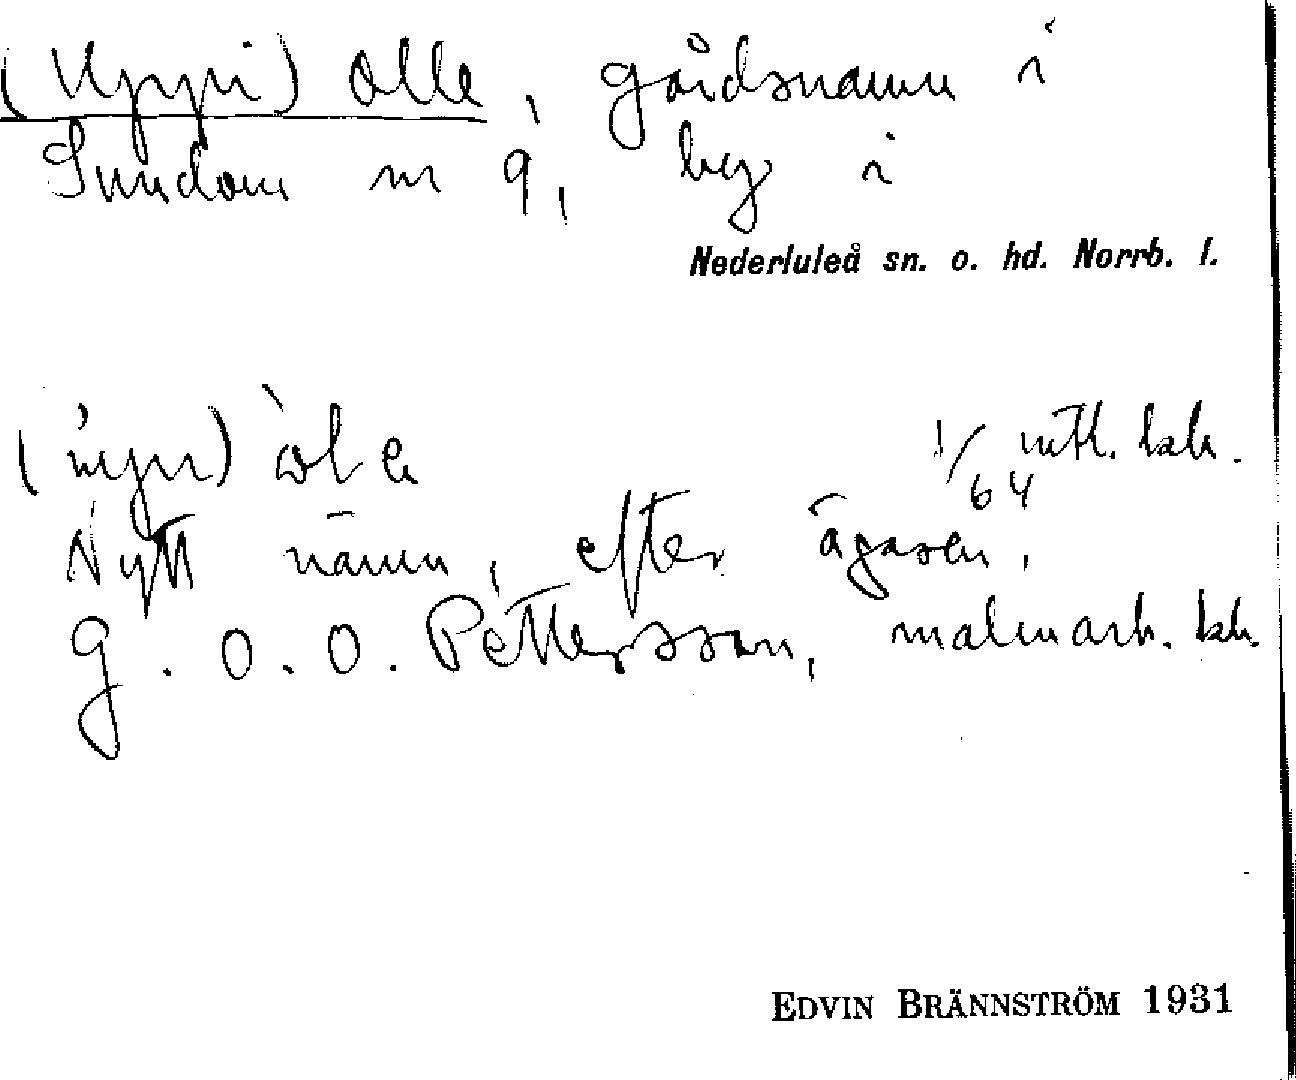 (Uppi) Olle, gårdsnamn i
Sundom nr 9, by i
Nederluleå sn. o. hd. Norrb. l.
1/64 mtl. bek.
Nytt namn, efter ägaren,
G. O. O. Pettersson, malmarb. bek.
EDVIN BRÄNNSTRÖM 1931